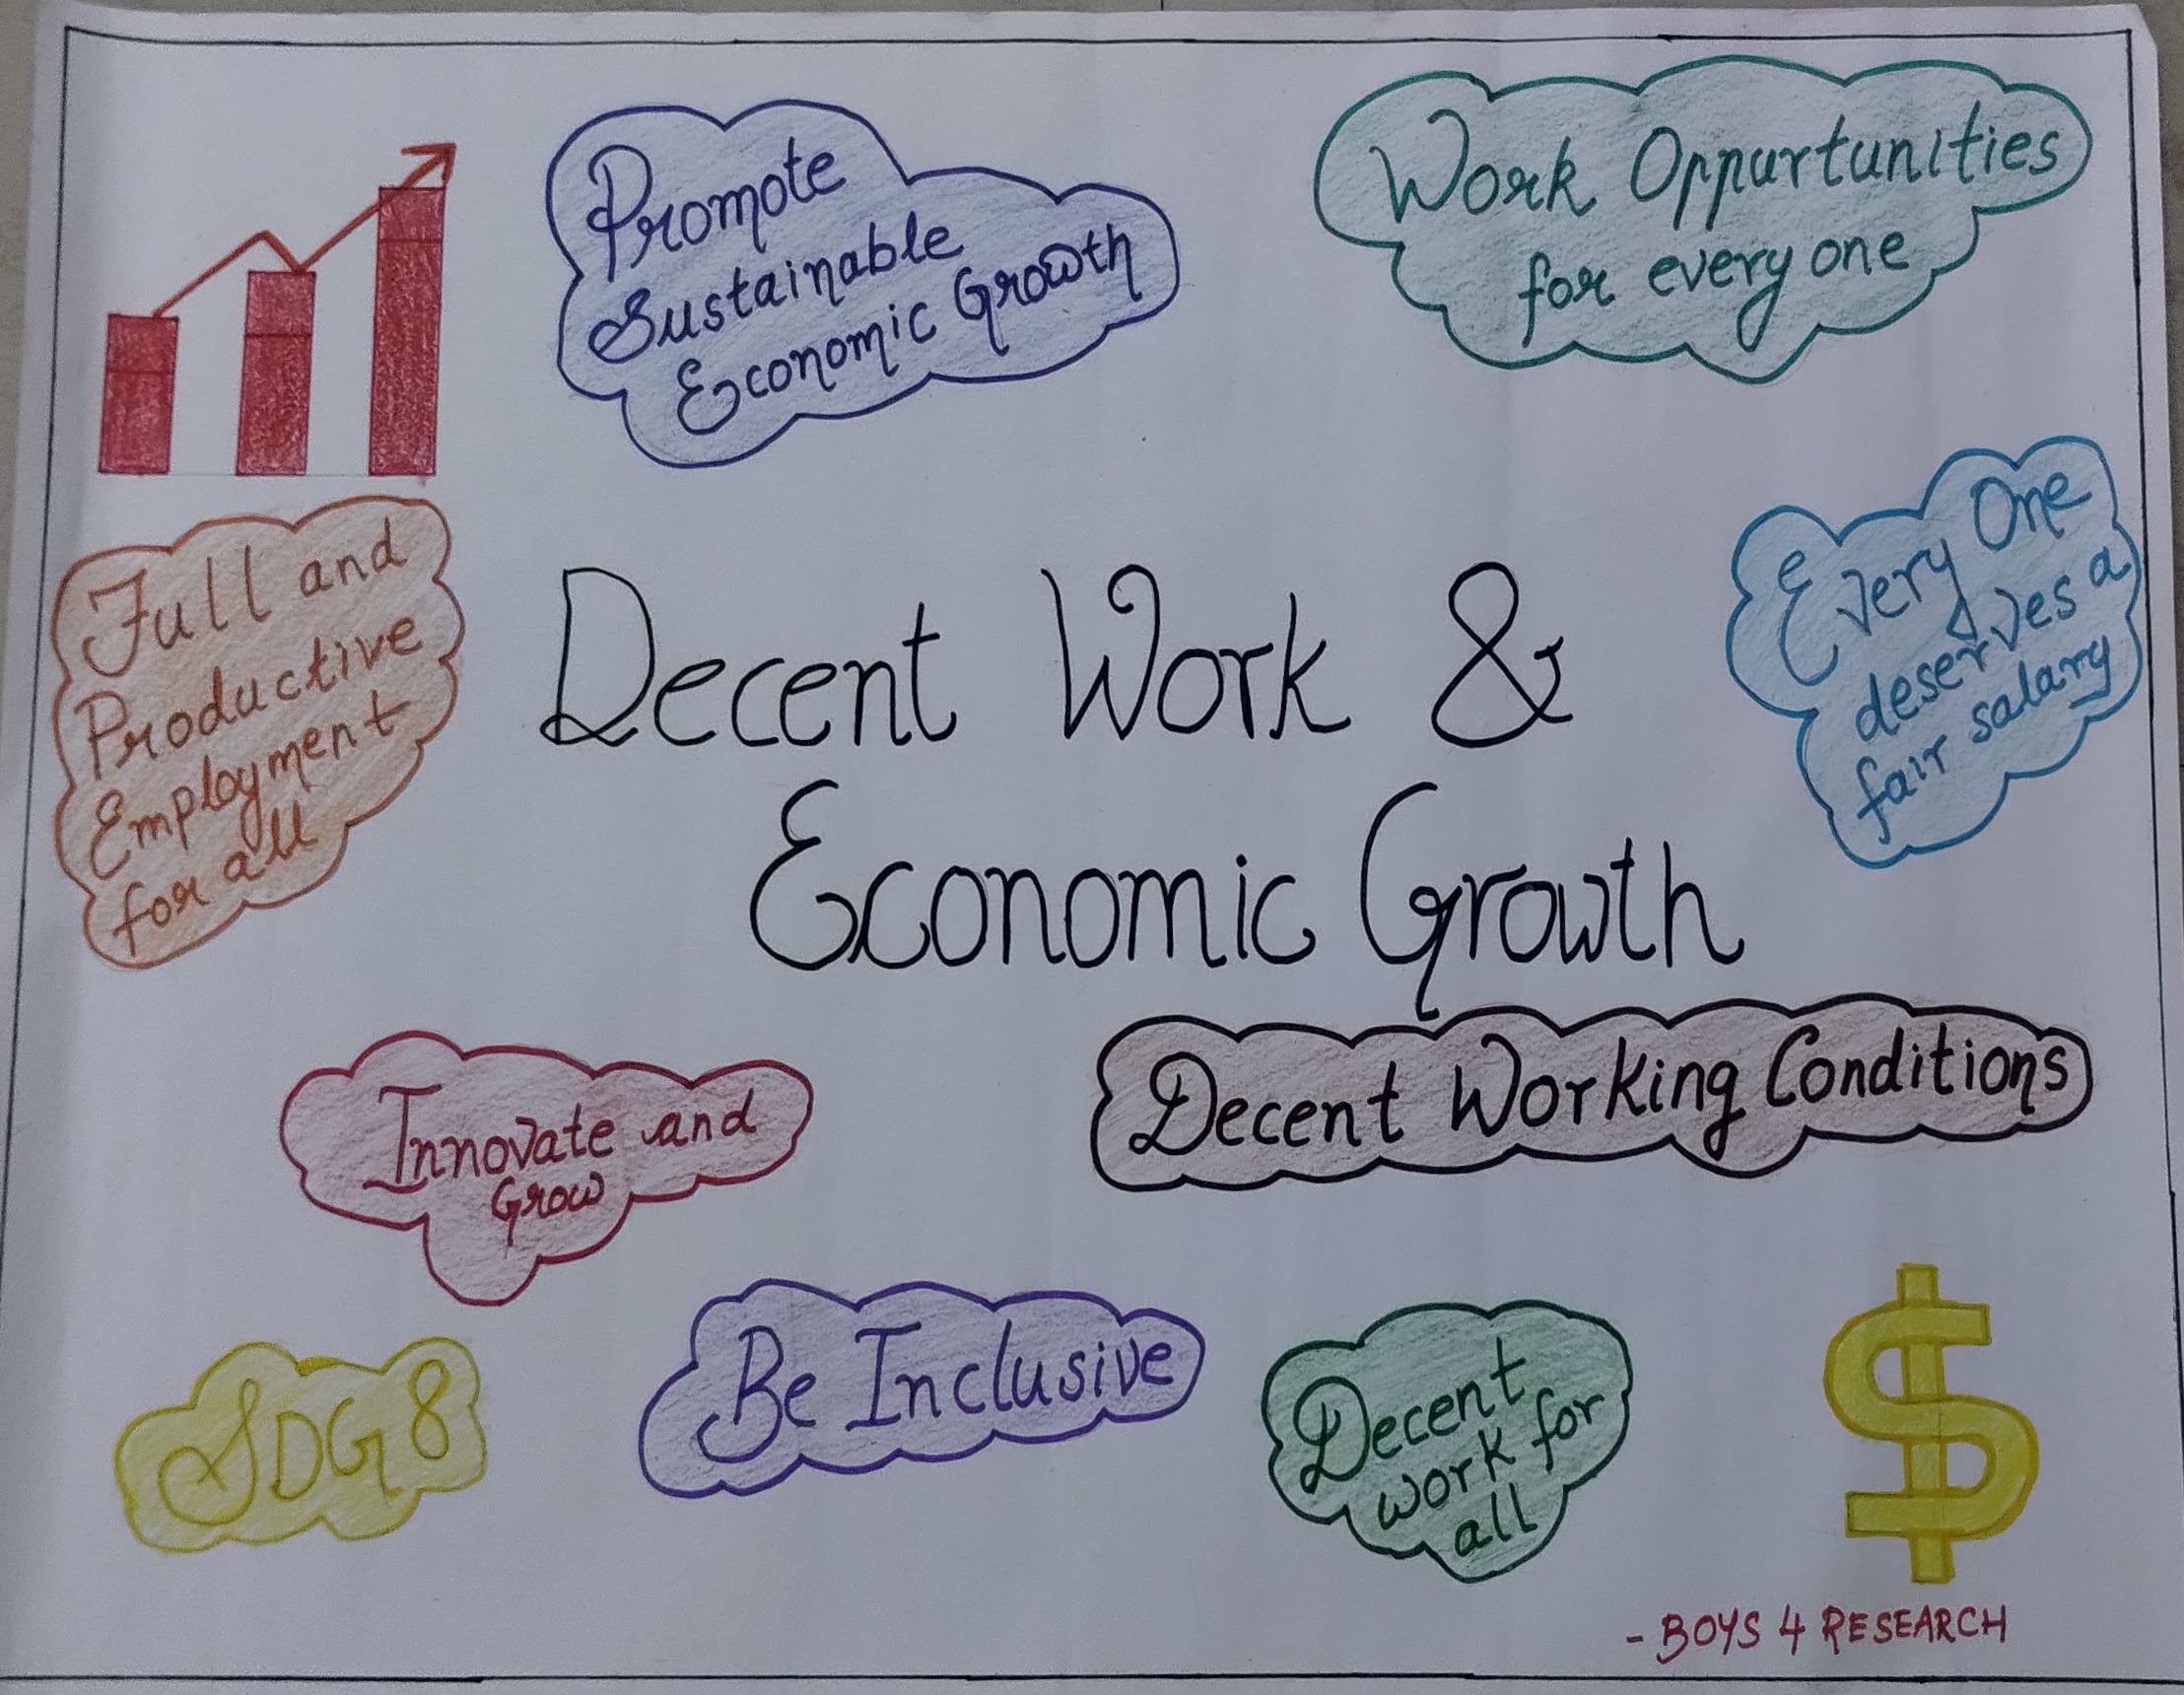 Promote
Sustainable
Economic Growth
Work Oppurtunities
for every one
Full and
Productive
Employment
for all
Every One
deserves a
fair salary
Decent Work &
Economic Growth
Innovate and
Grow
Decent Working Conditions
SDG 8
Be Inclusive
Decent
work for
all
$
- BOYS 4 RESEARCH